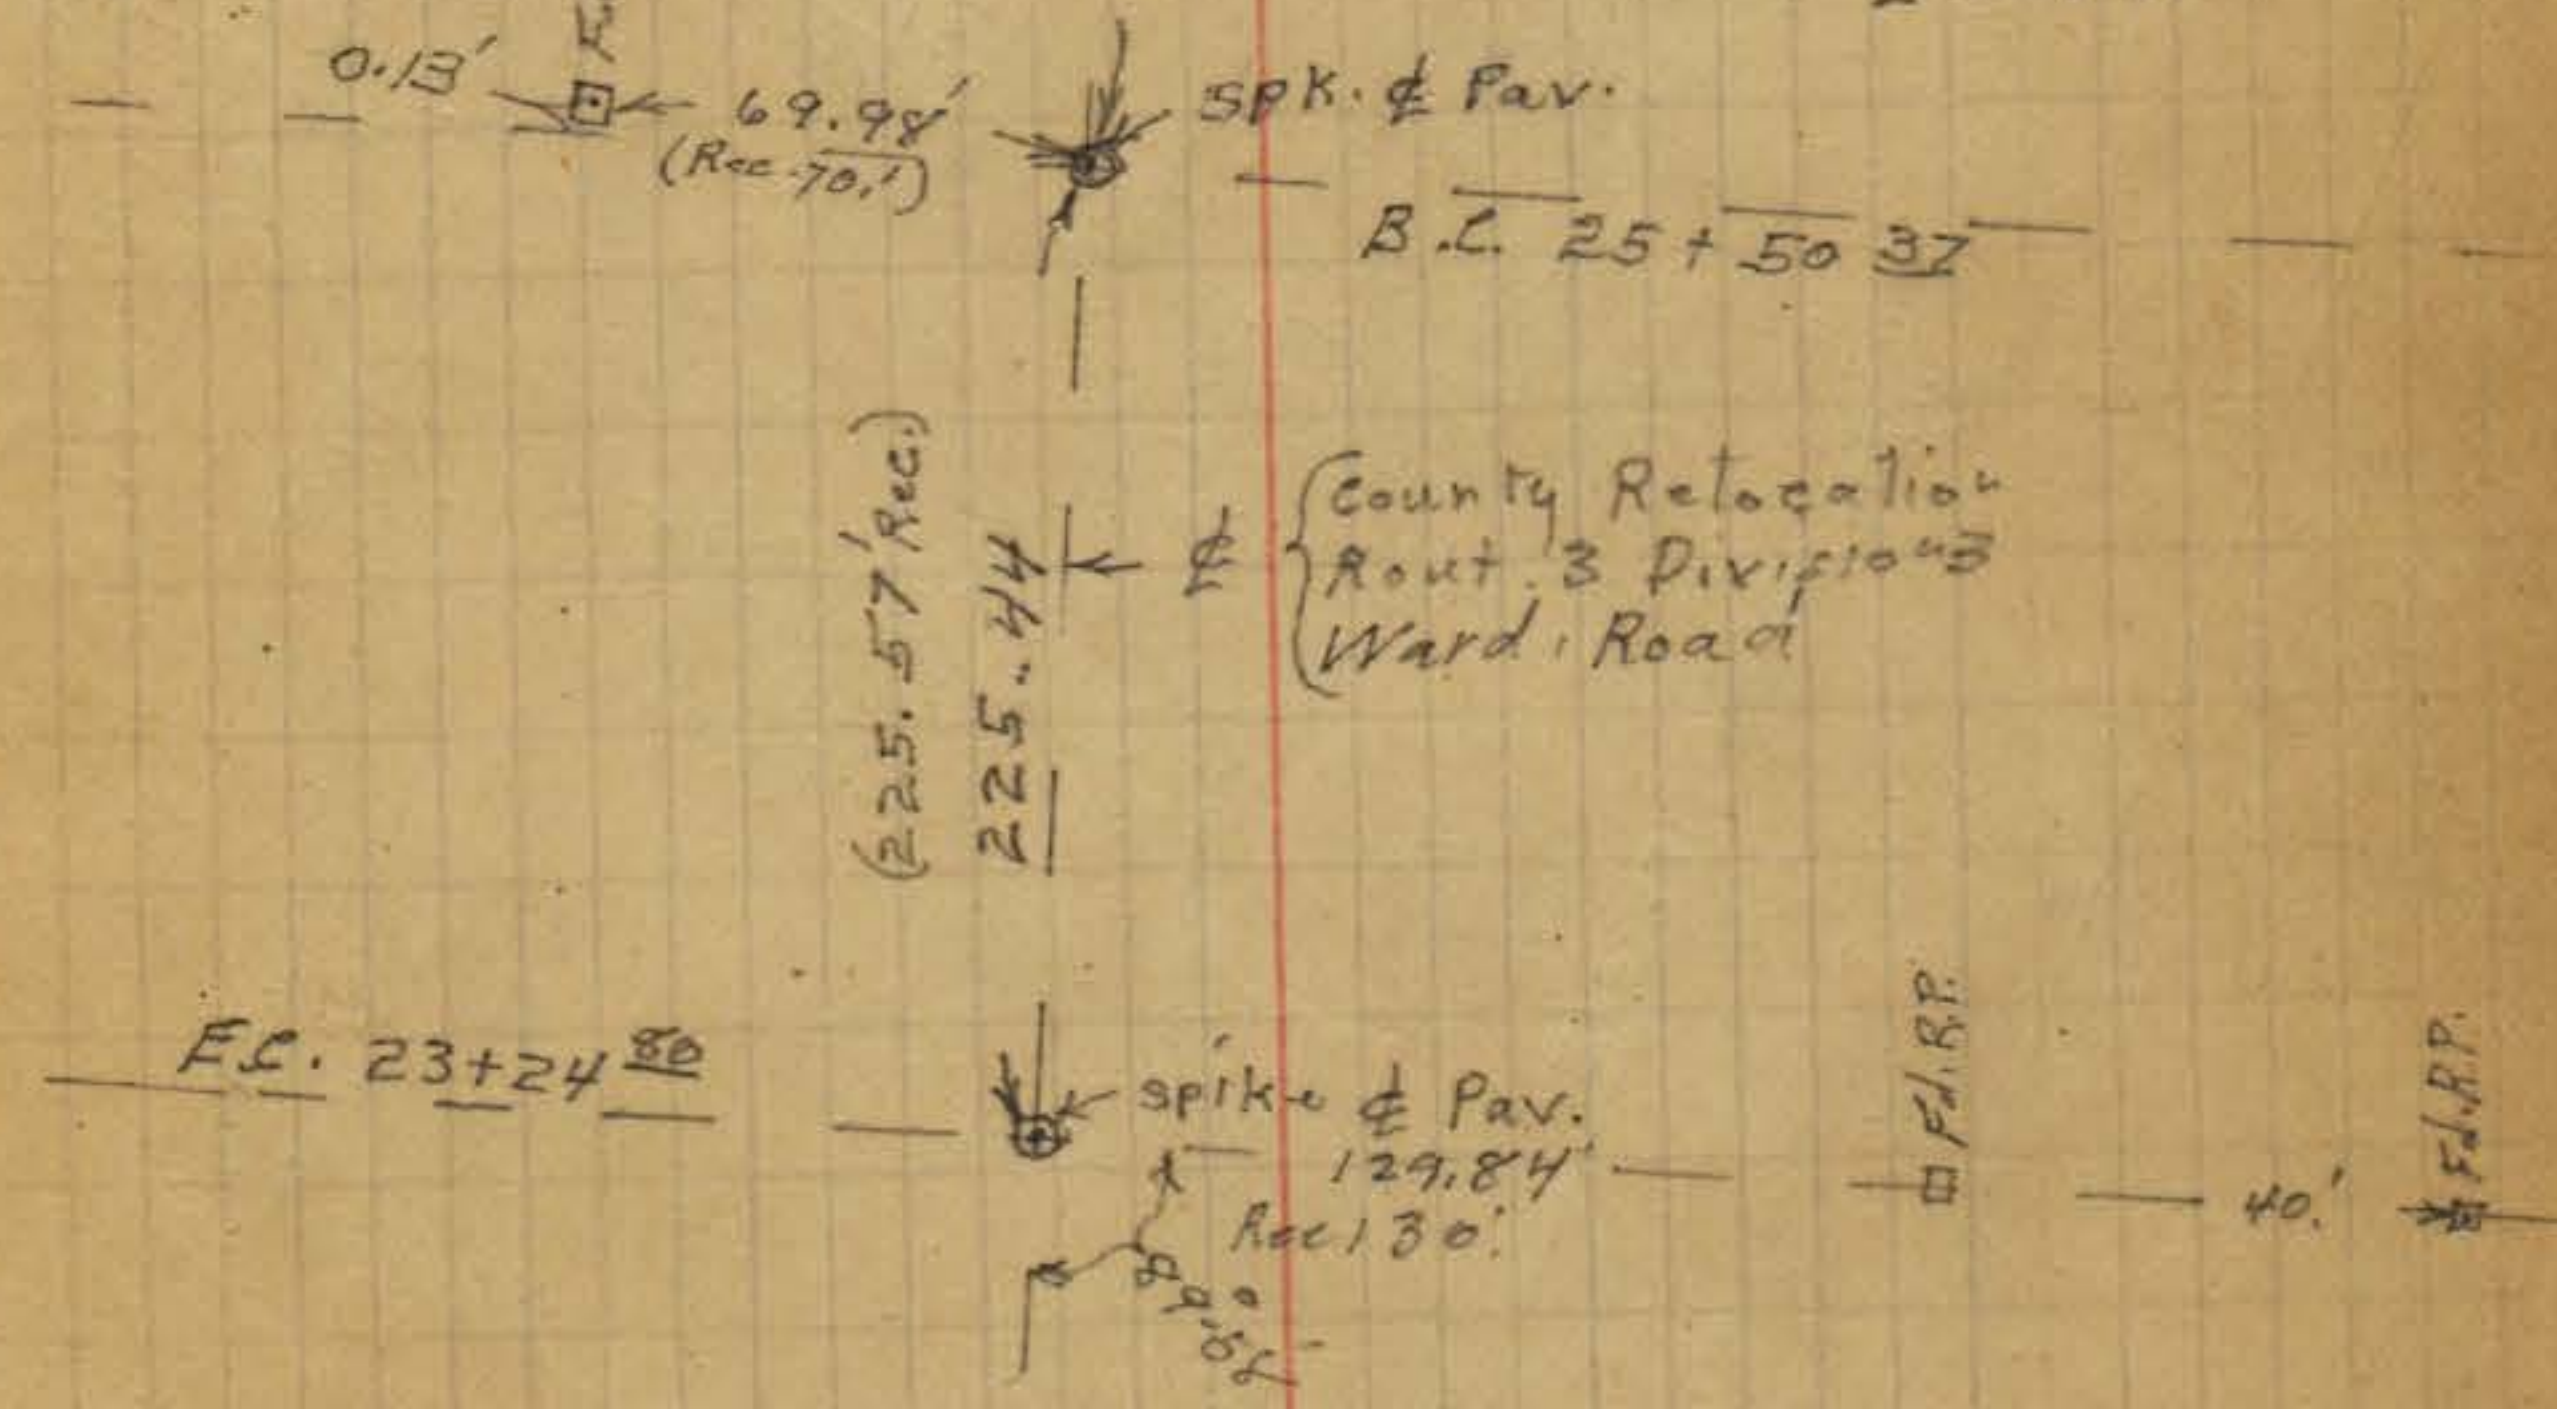 0.13'
69.98'
(Rec. 70.')
spk. ₵ Pav.
B.C. 25 + 50 37
(225.57' Rec.)
225..44
₵
County Relocation
Rout. 3 Division 3
Ward. Road
E.C. 23+24 80
spike ₵ Pav.
129.84'
Rec 130.'
Fd. R.P.
40.'
Fd. R.P.